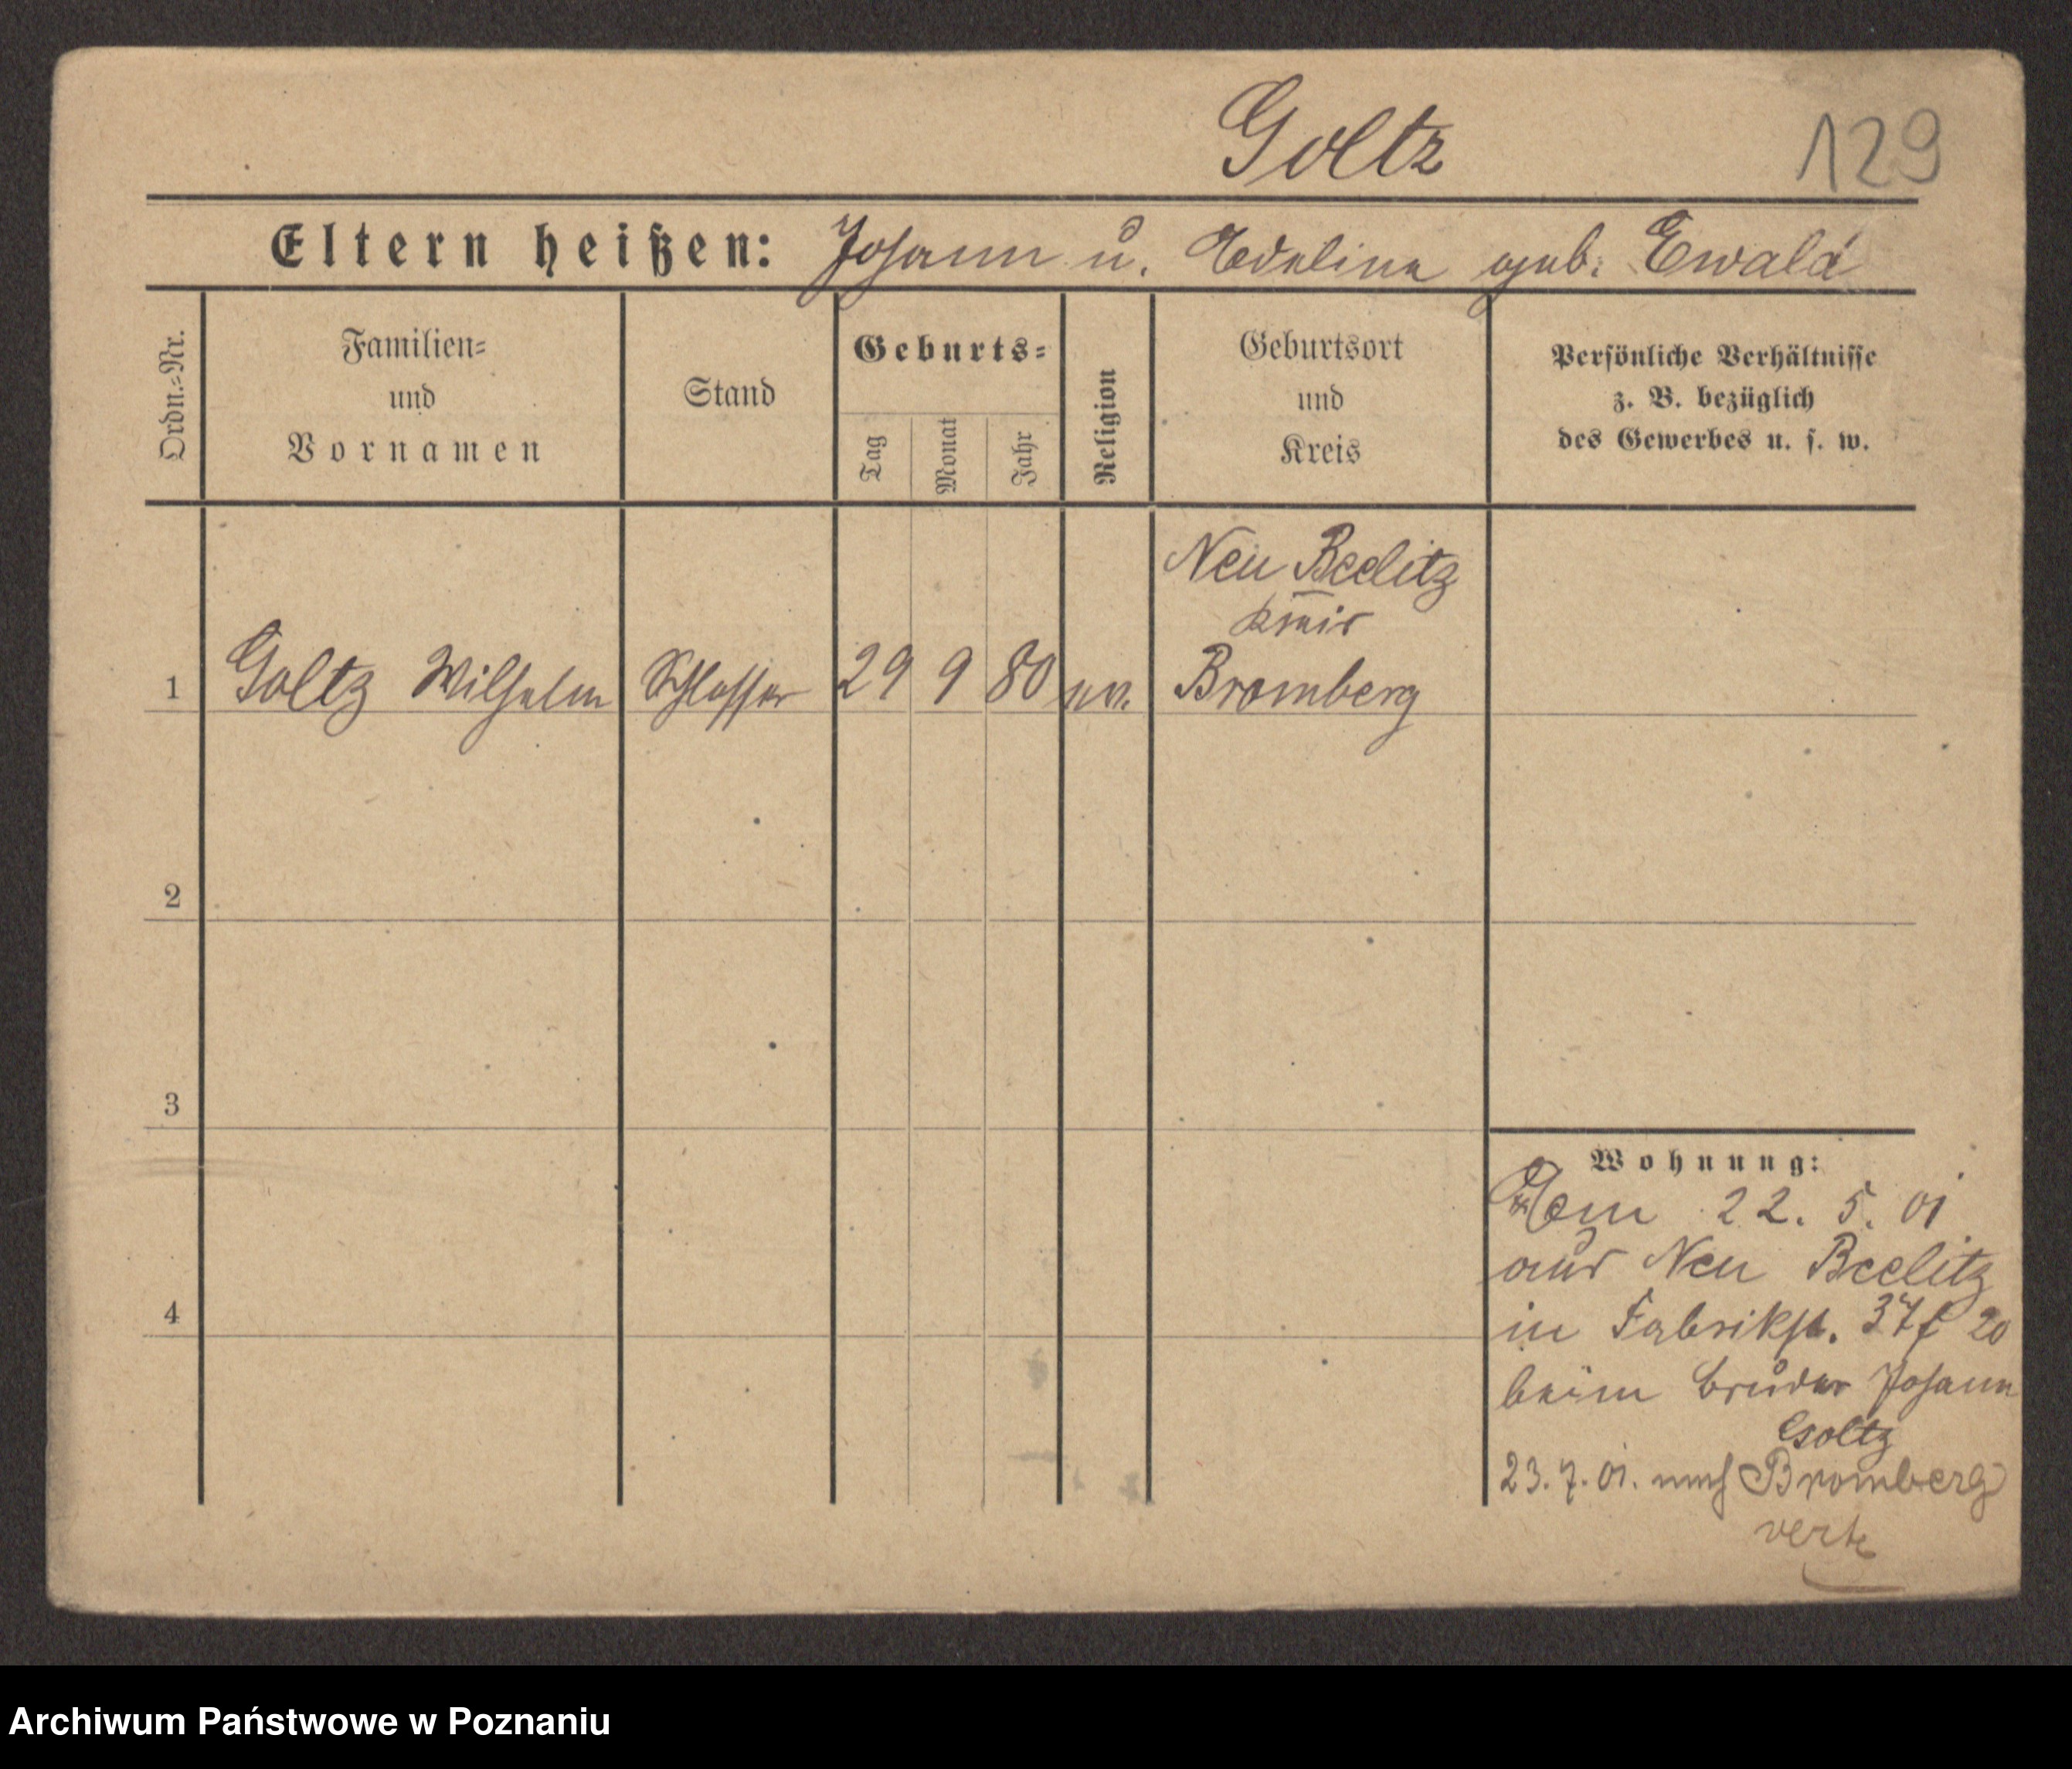 Goltz
129
Eltern heißen: Johann u. Edeline geb. Ewald
Ordn.=Nr.
Familien=
und
Vornamen
Stand
Geburts=
Tag
Monat
Jahr
Religion
Geburtsort
und
Kreis
Persönliche Verhältnisse
z. B. bezüglich
des Gewerbes u. s. w.
Neu Beelitz
Kreis
1 Goltz Wilhelm Schlosser 29 9 80 ev. Bromberg
2
3
4
Wohnung:
22. 5. 01
aus Neu Beelitz
in Fabrikst. 37f 20
beim Bruder Johann
Goltz
23. 7. 01. nach Bromberg
verte
Archiwum Państwowe w Poznaniu